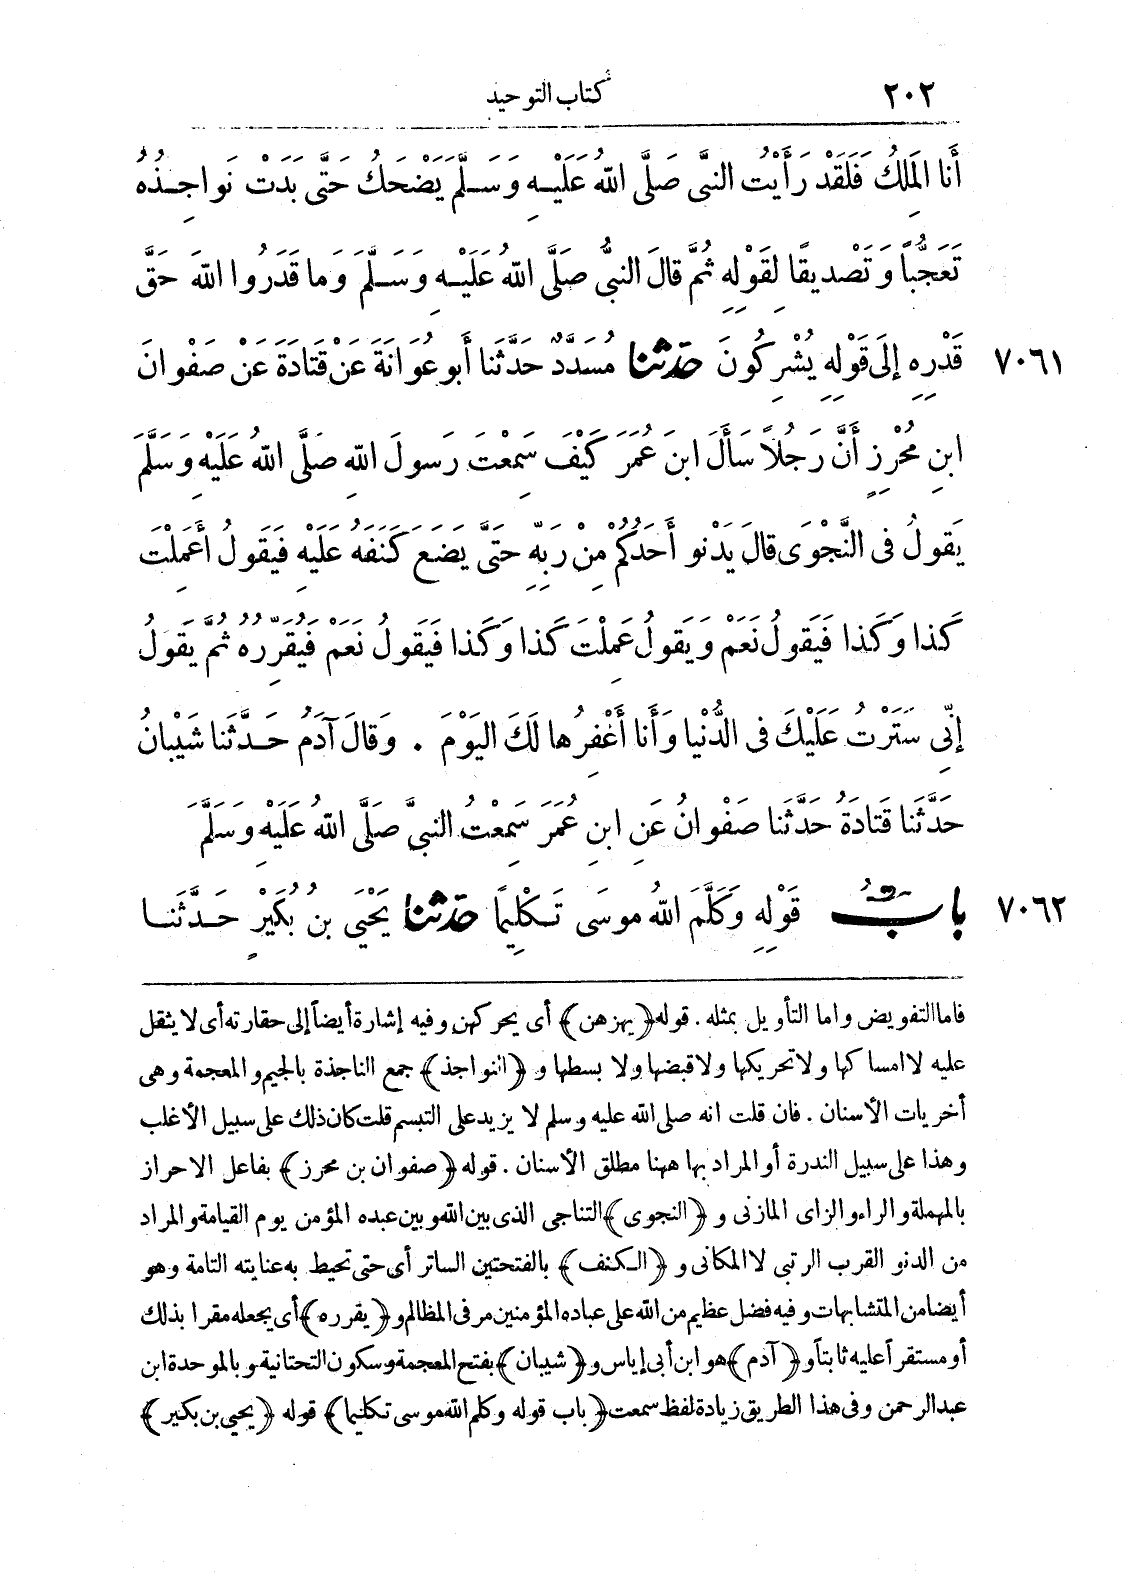 ٢٠٢ كتاب التوحيد
أَنَا المَلِكُ فَلَقَدْ رَأَيْتُ النبىَّ صَلَّى اللّهُ عَلَيْهِ وَسَلَّمَ يَضْحَكُ حَتَّى بَدَتْ نَواجِذُهُ
تَعَجُّباً وَتَصْدِيقًا لِقَوْلِهِ ثُمَّ قالَ النبىُّ صَلَّى اللّهُ عَلَيْهِ وَسَلَّمَ وَما قَدَرُوا اللّهَ حَقَّ
٧٠٦١ قَدْرِهِ إِلَى قَوْلِهِ يُشْرِكُونَ حَدّثنا مُسَدَّدٌ حَدَّثَنا أَبو عُوَانَةَ عَنْ قَتادَةَ عَنْ صَفْوانَ
ابنِ مُحْرِزٍ أَنَّ رَجُلاً سَأَلَ ابنَ عُمَرَ كَيْفَ سَمِعْتَ رَسولَ اللّهِ صَلَّى اللّهُ عَلَيْهِ وَسَلَّمَ
يَقولُ فى النَّجْوَى قالَ يَدْنو أَحَدُكُمْ مِنْ رَبِّهِ حَتَّى يَضَعَ كَنَفَهُ عَلَيْهِ فَيَقولُ أَعَمِلْتَ
كَذا وَكَذا فَيَقولُ نَعَمْ وَيَقولُ عَمِلْتَ كَذا وَكَذا فَيَقولُ نَعَمْ فَيُقَرِّرُهُ ثُمَّ يَقولُ
إِنِّى سَتَرْتُ عَلَيْكَ فى الدُّنْيا وَأَنا أَغْفِرُها لَكَ اليَوْمَ . وَقالَ آدَمُ حَدَّثَنا شَيْبانُ
حَدَّثَنا قَتادَةُ حَدَّثَنا صَفْوانُ عَنِ ابنِ عُمَرَ سَمِعْتُ النبىَّ صَلَّى اللّهُ عَلَيْهِ وَسَلَّمَ
٧٠٦٢ بابُ قَوْلِهِ وَكَلَّمَ اللّهُ موسَى تَكْلِيمًا حَدّثنا يَحْيَى بن بُكَيْرٍ حَدَّثَنا
فاما التفويض واما التأويل بمثله . قوله ﴿يهزهن﴾ أى يحركهن وفيه إشارة أيضاً إلى حقارته أى لا يثقل
عليه لا امساكها ولا تحريكها ولا قبضها ولا بسطها و ﴿النواجذ﴾ جمع الناجذة بالجيم والمعجمة وهى
أخريات الأسنان . فان قلت انه صلى الله عليه وسلم لا يزيد على التبسم قلت كان ذلك على سبيل الأغلب
وهذا على سبيل الندرة أو المراد بها ههنا مطلق الأسنان . قوله ﴿صفوان بن محرز﴾ بفاعل الاحراز
بالمهملة والراء والزاى المازنى و ﴿النجوى﴾ التناجى الذى بين الله وبين عبده المؤمن يوم القيامة والمراد
من الدنو القرب الرتبى لا المكانى و ﴿الكنف﴾ بالفتحتين الساتر أى حتى تحيط به عنايته التامة وهو
أيضا من المتشابهات وفيه فضل عظيم من الله على عباده المؤمنين مر فى المظالم و ﴿يقرره﴾ أى يجعله مقرا بذلك
أو مستقراً عليه ثابتاً و ﴿آدم﴾ هو ابن أبى إياس و ﴿شيبان﴾ بفتح المعجمة وسكون التحتانية وبالموحدة ابن
عبد الرحمن وفى هذا الطريق زيادة لفظ سمعت ﴿باب قوله وكلم الله موسى تكليما﴾ قوله ﴿يحيى بن بكير﴾